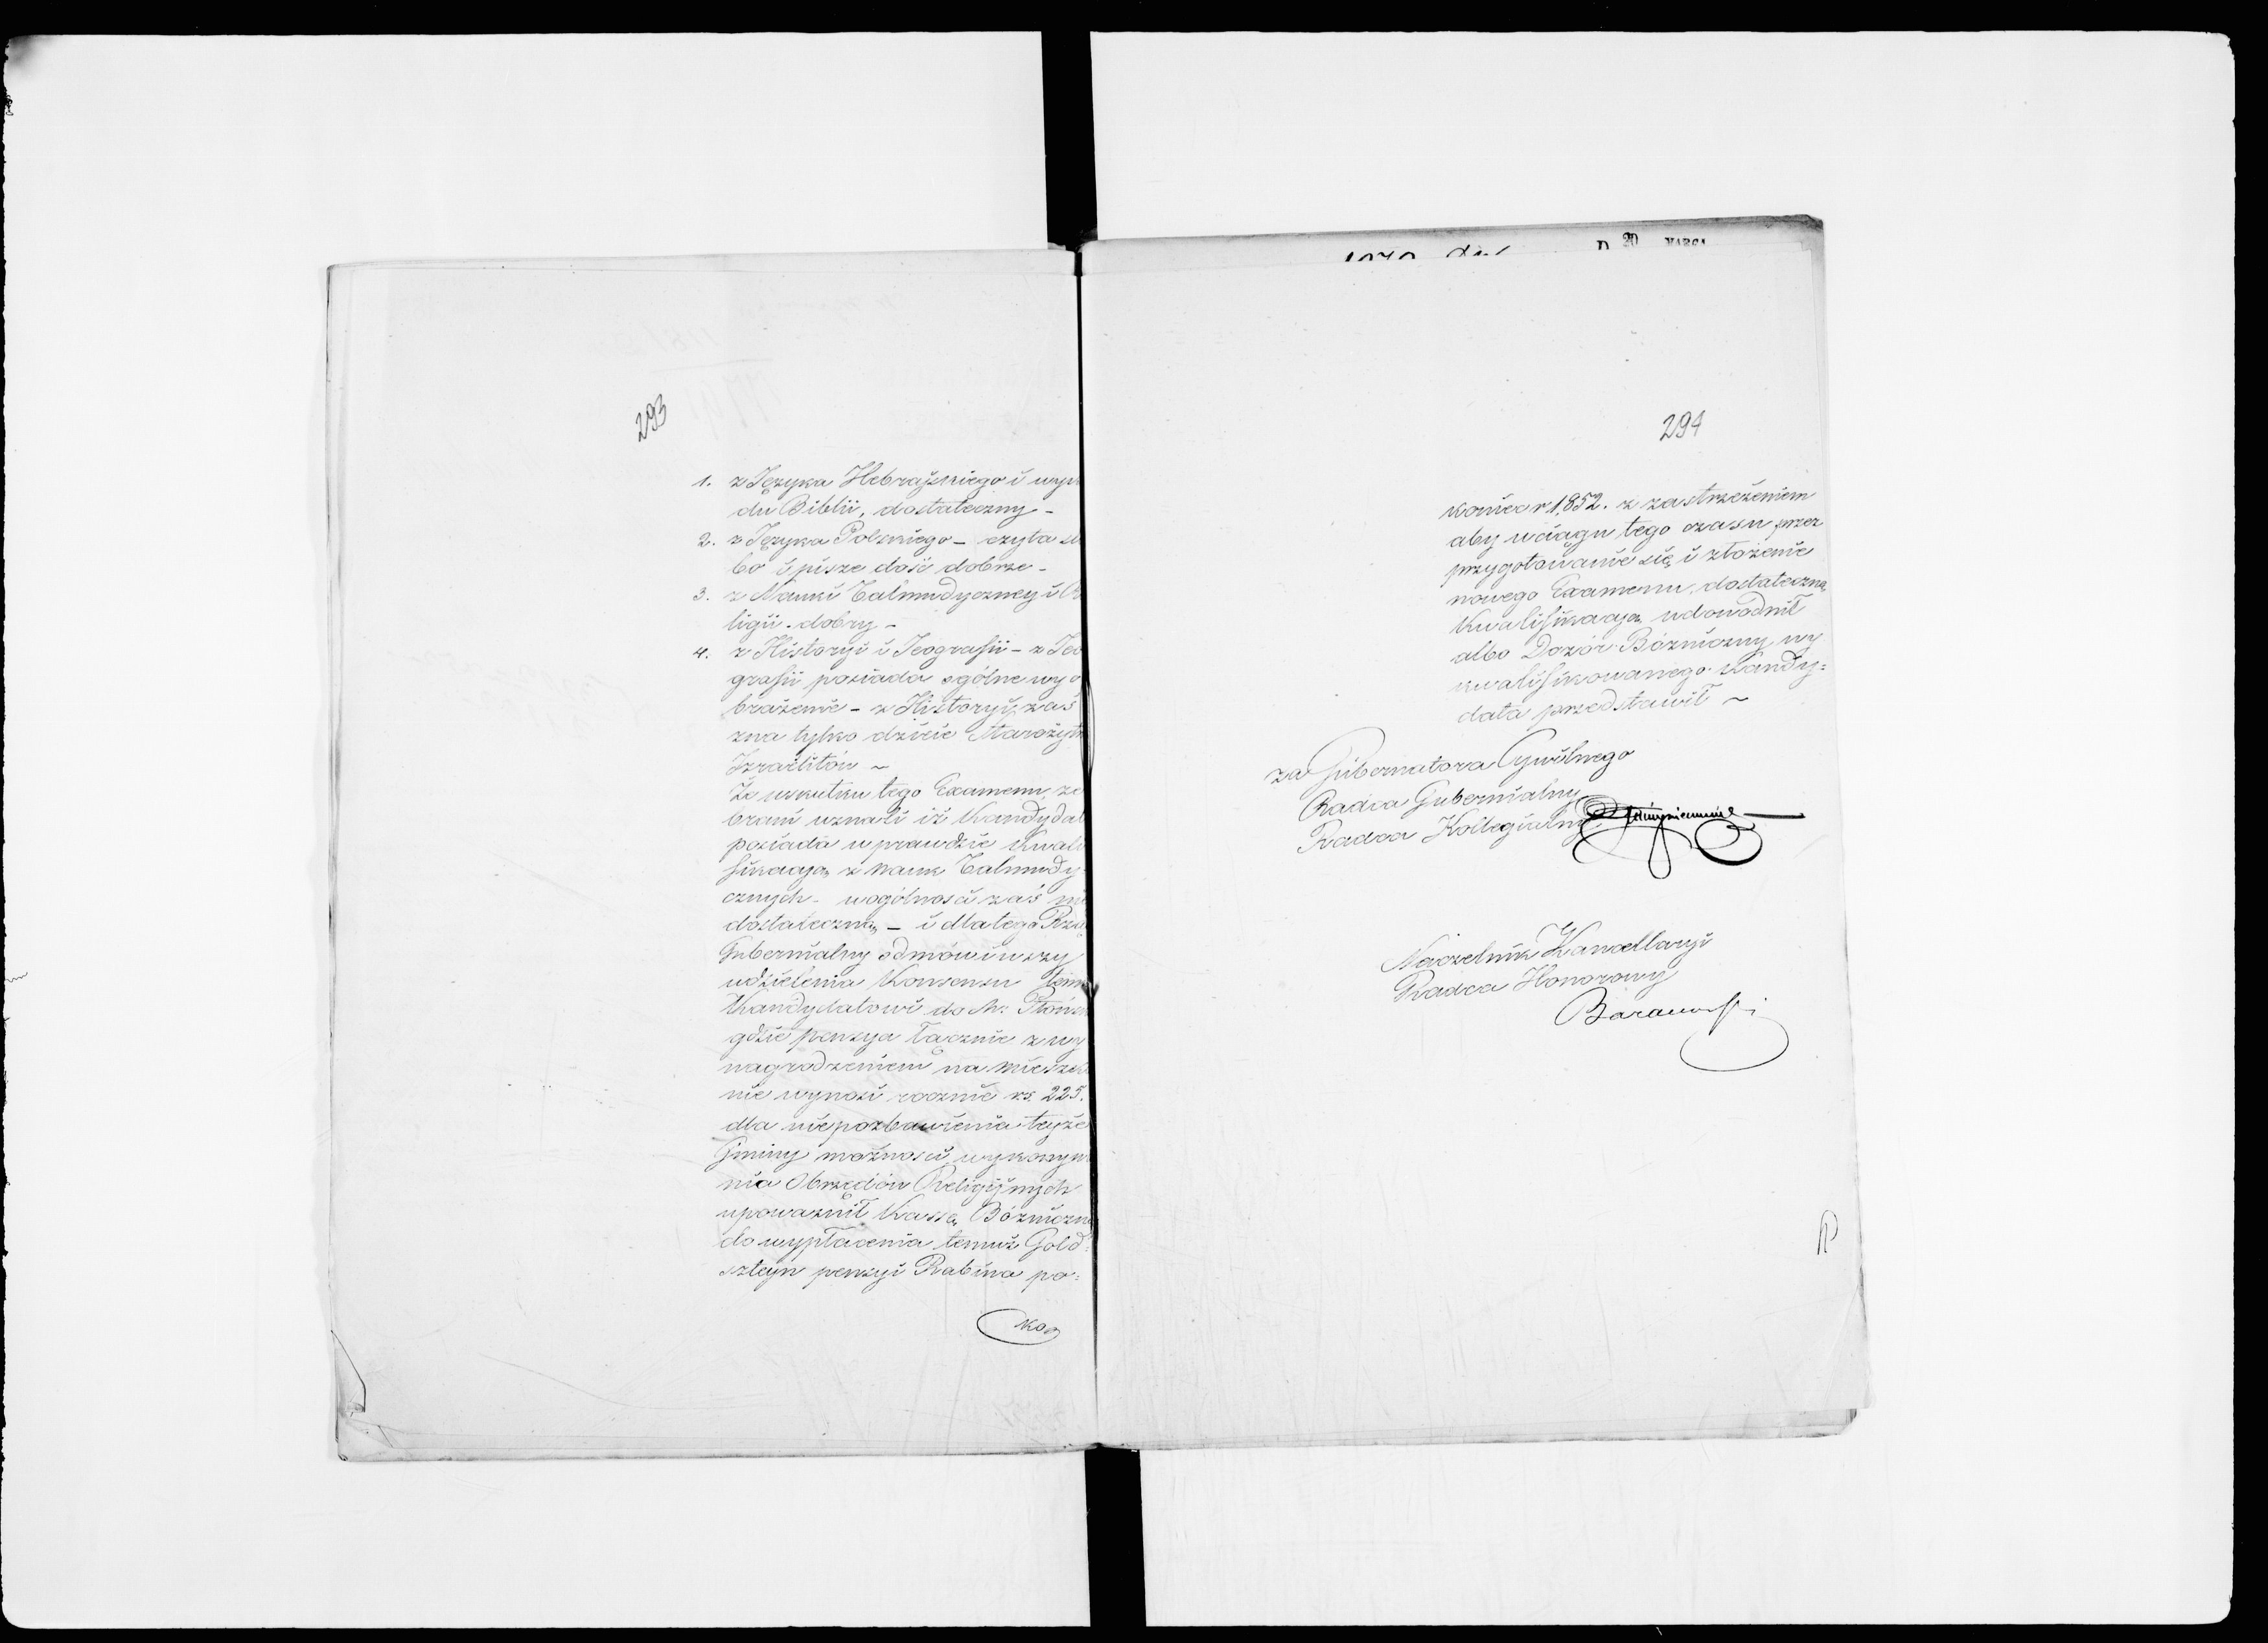 293
1. z Języka Hebrajskiego i wyk
du Biblii, dostateczny -
2. z Języka Polskiego - czyta sła
bo i pisze dość dobrze -
3. z Nauki Talmudyczney i Re
ligii - dobry -
4. z Historyi i Jeografii - z Jeo
grafii posiada ogólne wyo
brażenie - z Historyi zaś
zna tylko dzieie Starożytn
Izraelitów ~
Ze skutku tego Examenu, ze
brani uznali iż Kandydat
posiada wprawdzie Kwali
fikacyą z nauk Talmudy
cznych - wogólności zaś nie
dostateczną, - i dlatego Rząd
Gubernialny odmówiwszy
udzielenia Konsensu temu
Kandydatowi do M. Płońsk
gdzie pensya łącznie z wy
nagrodzeniem na mieszka
nie wynosi rocznie rs. 225.
dla niepozbawienia teyże
Gminy możności wykonywa
nia Obrzędów Religijnych
upoważnił Kassę Bóżniczną
do wypłacenia temuż Gold:
szteyn pensyi Rabina po:
ko
D 20 MARCA
294
koniec r. 1852. z zastrzeżeniem
aby wciągu tego czasu przez
przygotowanie się i złożenie
nowego Examenu, dostateczną
Kwalifikacyą udowodnił
albo Dozór Bóżniczny wy
kwalifikowanego Kandy:
data przedstawił ~
za Gubernatora Cywilnego
Radca Gubernialny
Radca Kollegialny
Naczelnik Kancellaryi
Radca Honorowy
Baranowski